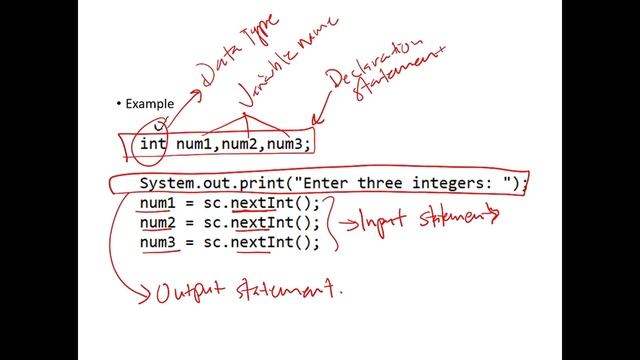 Data Type
Variable name
Declaration
statement
• Example
int num1,num2,num3;
System.out.print("Enter three integers: ");
num1 = sc.nextInt();
num2 = sc.nextInt();
num3 = sc.nextInt();
Input statements
Output statement.